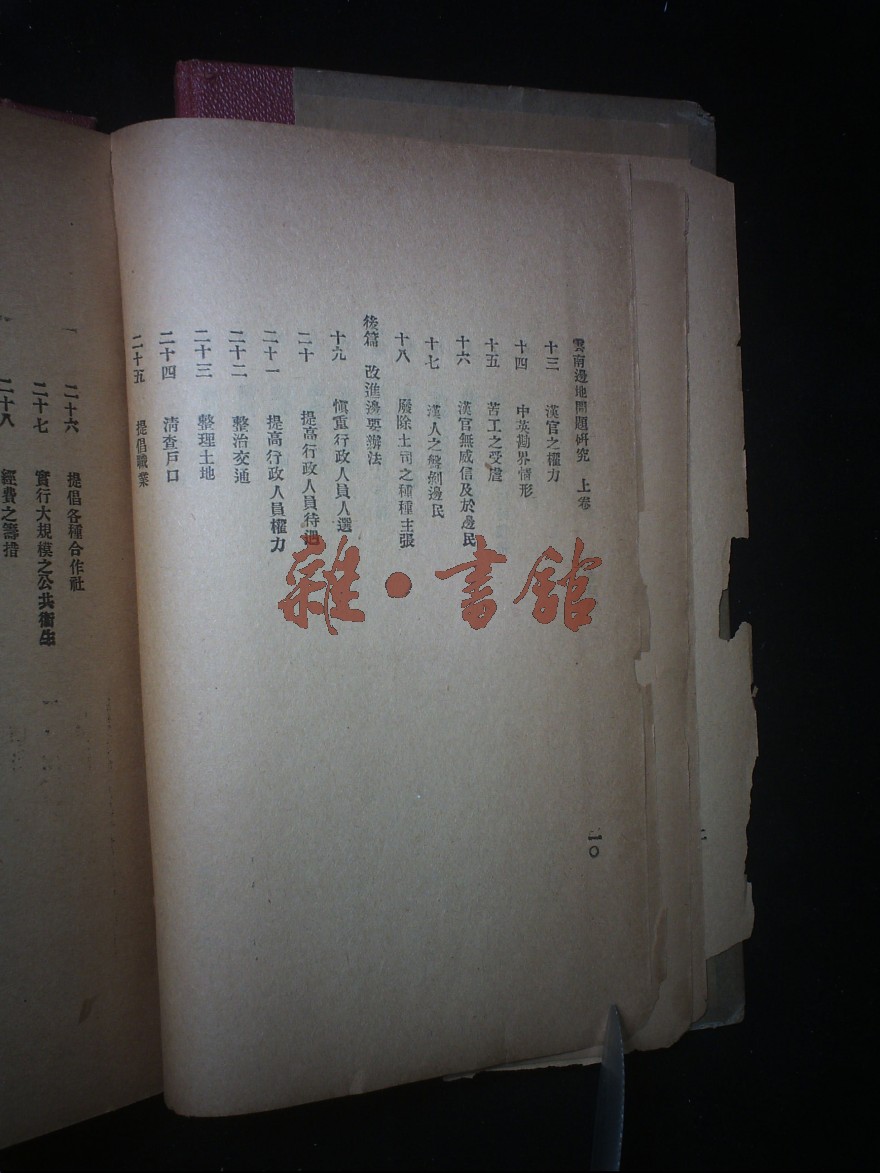 雲南邊地問題研究　上卷
十三　漢官之權力
十四　中英勘界情形
十五　苦工之受虐
十六　漢官無威信及於邊民
十七　漢人之盤剝邊民
十八　廢除土司之種種主張
後篇　改進邊要辦法
十九　愼重行政人員人選
二十　提高行政人員待遇
二十一　提高行政人員權力
二十二　整治交通
二十三　整理土地
二十四　淸查戶口
二十五　提倡職業
二〇
二十六　提倡各種合作社
二十七　實行大規模之公共衞生
二十八　經費之籌措
雜·書館